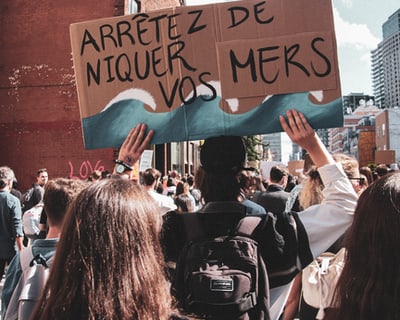 ARRÊTEZ DE
NIQUER
VOS MERS
106